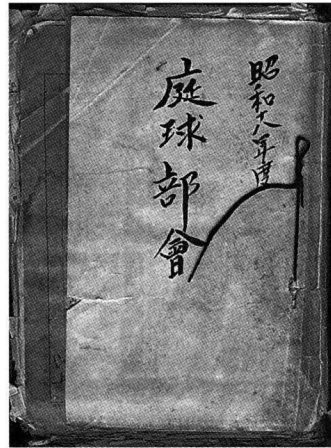 昭和十八年度
庭球部會